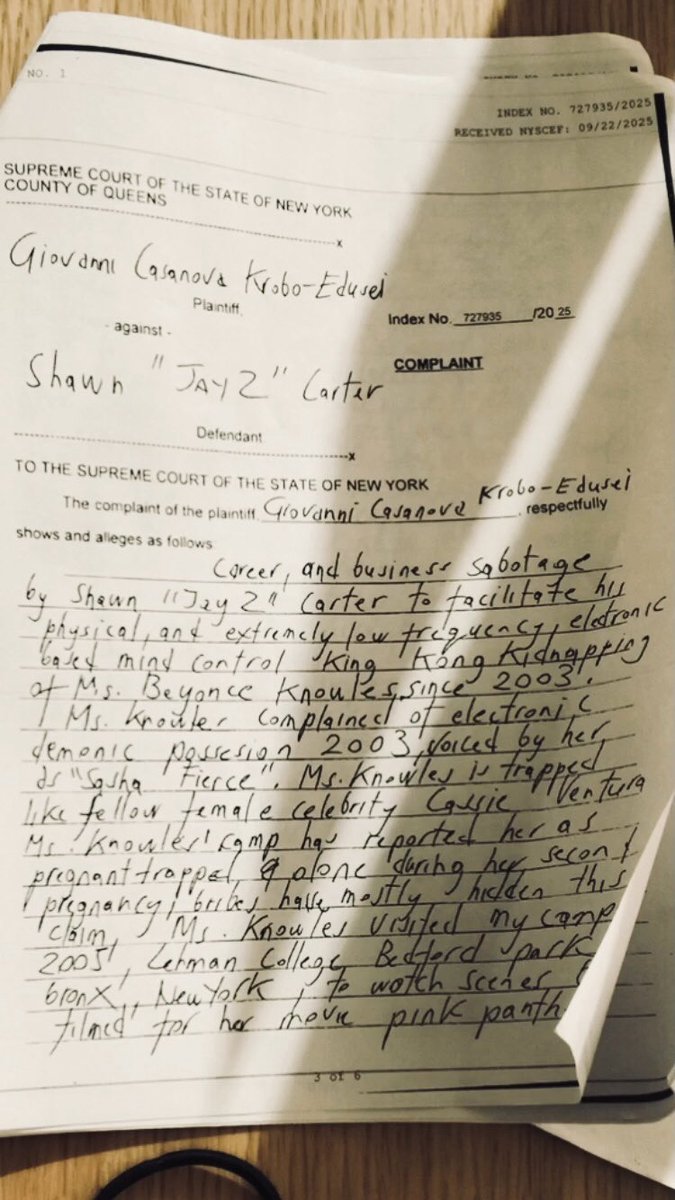 NO. 1
INDEX NO. 727935/2025
RECEIVED NYSCEF: 09/22/2025
SUPREME COURT OF THE STATE OF NEW YORK
COUNTY OF QUEENS
x
Giovanni Casanova Krobo-Edusei
Plaintiff,
- against -
Index No. 727935 /20 25
Shawn "JAY Z" Carter
COMPLAINT
Defendant.
x
TO THE SUPREME COURT OF THE STATE OF NEW YORK
The complaint of the plaintiff, Giovanni Casanova Krobo-Edusei, respectfully
shows and alleges as follows
Career, and business sabotage
by Shawn "Jay Z" Carter to facilitate his
physical, and extremely low frequency, eletronic
based mind control King Kong Kidnapping
of Ms. Beyonce Knowles, since 2003.
Ms. Knowles complained of electronic
demonic possesion 2003, voiced by her
as "Sasha Fierce". Ms. Knowles is trapped
like fellow female celebrity Cassie Ventura
Ms. Knowles' camp has reported her as
pregnant trapped, & alone during her second
pregnancy; bribes have mostly hidden this
claim, Ms. Knowles visited my camp
2005, Lehman College Bedford park
bronx, New York, to watch scenes
filmed for her movie pink panth
3 of 6